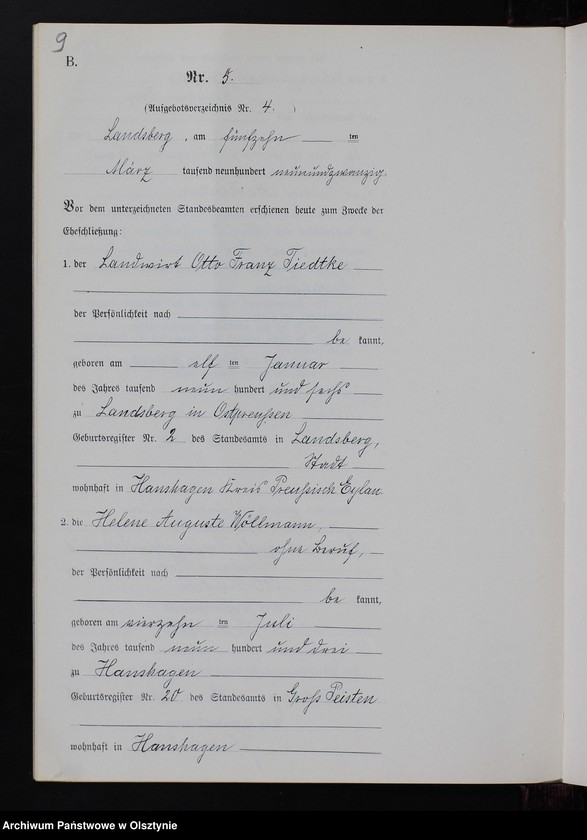 9
B.
Nr. 5.
(Aufgebotsverzeichnis Nr. 4. )
Landsberg, am fünfzehn ten
März tausend neunhundert neunundzwanzig.
Vor dem unterzeichneten Standesbeamten erschienen heute zum Zwecke der
Eheschließung:
1. der Landwirt Otto Franz Tiedtke
der Persönlichkeit nach
be kannt,
geboren am elf ten Januar
des Jahres tausend neun hundert und sechs
zu Landsberg in Ostpreußen
Geburtsregister Nr. 2 des Standesamts in Landsberg,
Stadt
wohnhaft in Hanshagen Kreis Preußisch Eylau
2. die Helene Auguste Wöllmann,
ohne Beruf,
der Persönlichkeit nach
be kannt,
geboren am vierzehn ten Juli
des Jahres tausend neun hundert und drei
zu Hanshagen
Geburtsregister Nr. 20 des Standesamts in Groß Peisten
wohnhaft in Hanshagen
Archiwum Państwowe w Olsztynie